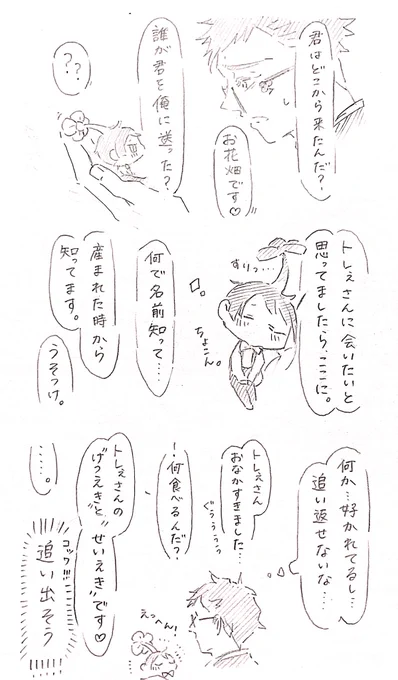 君はどこから来たんだ?
お花畑です♡
誰が君を俺に送った?
??
トレぇさんに会いたいと
思ってましたら、ここに。
すりっ…
ちょこん。
何で名前知って…
産まれた時から
知ってます。
うそつけ。
何か…好かれてるし…
追い返せないな…
トレぇさん
おなかすきました…
ぐぅぅぅっ
!何食べるんだ?
トレぇさんの
げつえきと"せいえき"です♡
えっへん!
……。
コッワ!!!
追い出そう